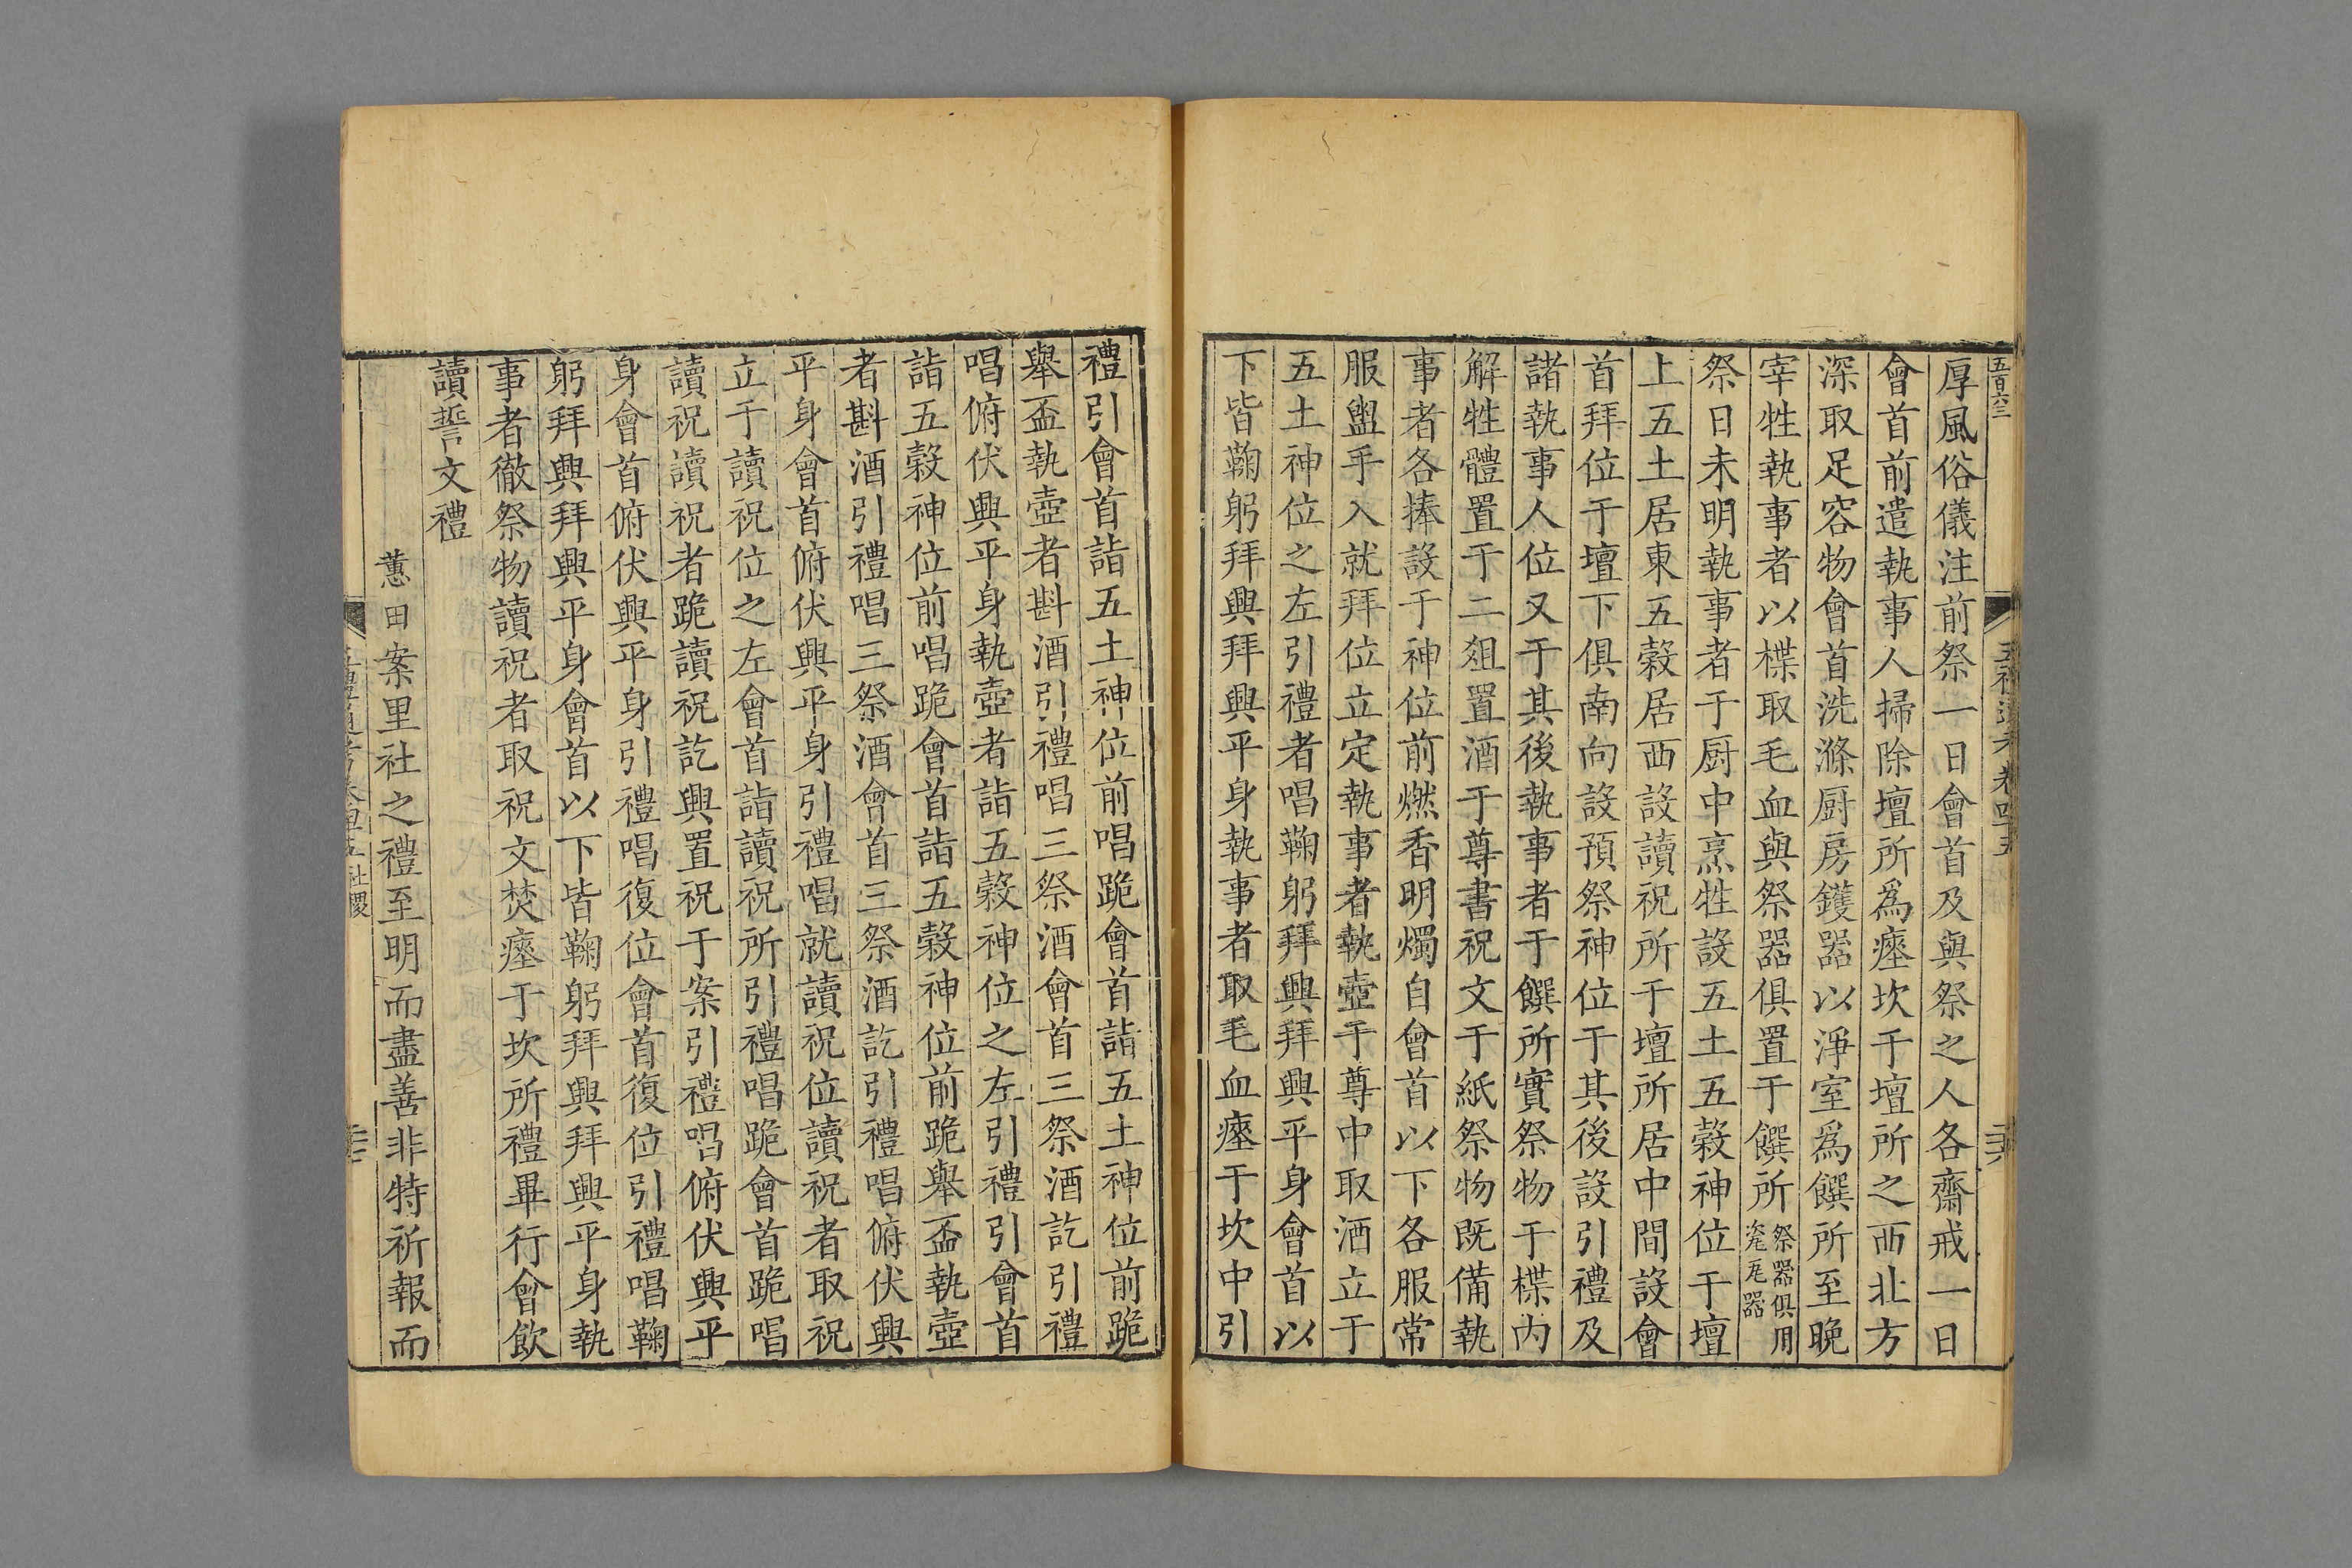 五百六三
厚風俗儀注前祭一日會首及與祭之人各齋戒一日
會首前遣執事人掃除壇所為瘞坎于壇所之西北方
深取足容物會首洗滌厨房鑊器以淨室為饌所至晚
宰牲執事者以楪取毛血與祭器俱置于饌所祭器俱用瓷瓦器
祭日未明執事者于厨中烹牲設五土五穀神位于壇
上五土居東五穀居西設讀祝所于壇所居中間設會
首拜位于壇下俱南向設預祭神位于其後設引禮及
諸執事人位又于其後執事者于饌所實祭物于楪內
解牲體置于二俎置酒于尊書祝文于紙祭物既備執
事者各捧設于神位前燃香明燭自會首以下各服常
服盥手入就拜位立定執事者執壺于尊中取酒立于
五土神位之左引禮者唱鞠躬拜興拜興平身會首以
下皆鞠躬拜興拜興平身執事者取毛血瘞于坎中引
禮引會首詣五土神位前唱跪會首詣五土神位前跪
舉盃執壺者斟酒引禮唱三祭酒會首三祭酒訖引禮
唱俯伏興平身執壺者詣五穀神位之左引禮引會首
詣五穀神位前唱跪會首詣五穀神位前跪舉盃執壺
者斟酒引禮唱三祭酒會首三祭酒訖引禮唱俯伏興
平身會首俯伏興平身引禮唱就讀祝位讀祝者取祝
立于讀祝位之左會首詣讀祝所引禮唱跪會首跪唱
讀祝讀祝者跪讀祝訖興置祝于案引禮唱俯伏興平
身會首俯伏興平身引禮唱復位會首復位引禮唱鞠
躬拜興拜興平身會首以下皆鞠躬拜興拜興平身執
事者徹祭物讀祝者取祝文焚瘞于坎所禮畢行會飲
讀誓文禮
蕙田案里社之禮至明而盡善非特祈報而